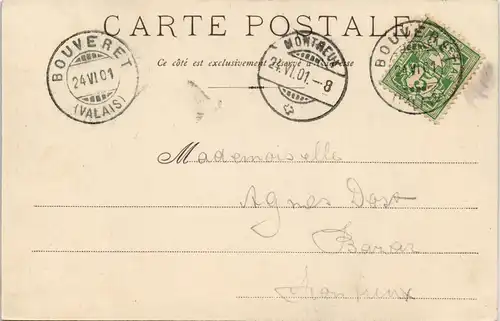 CARTE POSTALE
Ce côté est exclusivement réservé à l'adresse
BOUVERET
24.VI.01
(VALAIS)
MONTREUX
24.VI.01.-8
BOUVERET
Mademoiselle
Agnes Dost
Bazar
Montreux